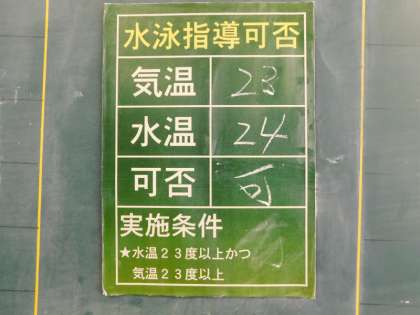 水泳指導可否
気温 23
水温 24
可否 可
実施条件
★水温23度以上かつ
気温23度以上